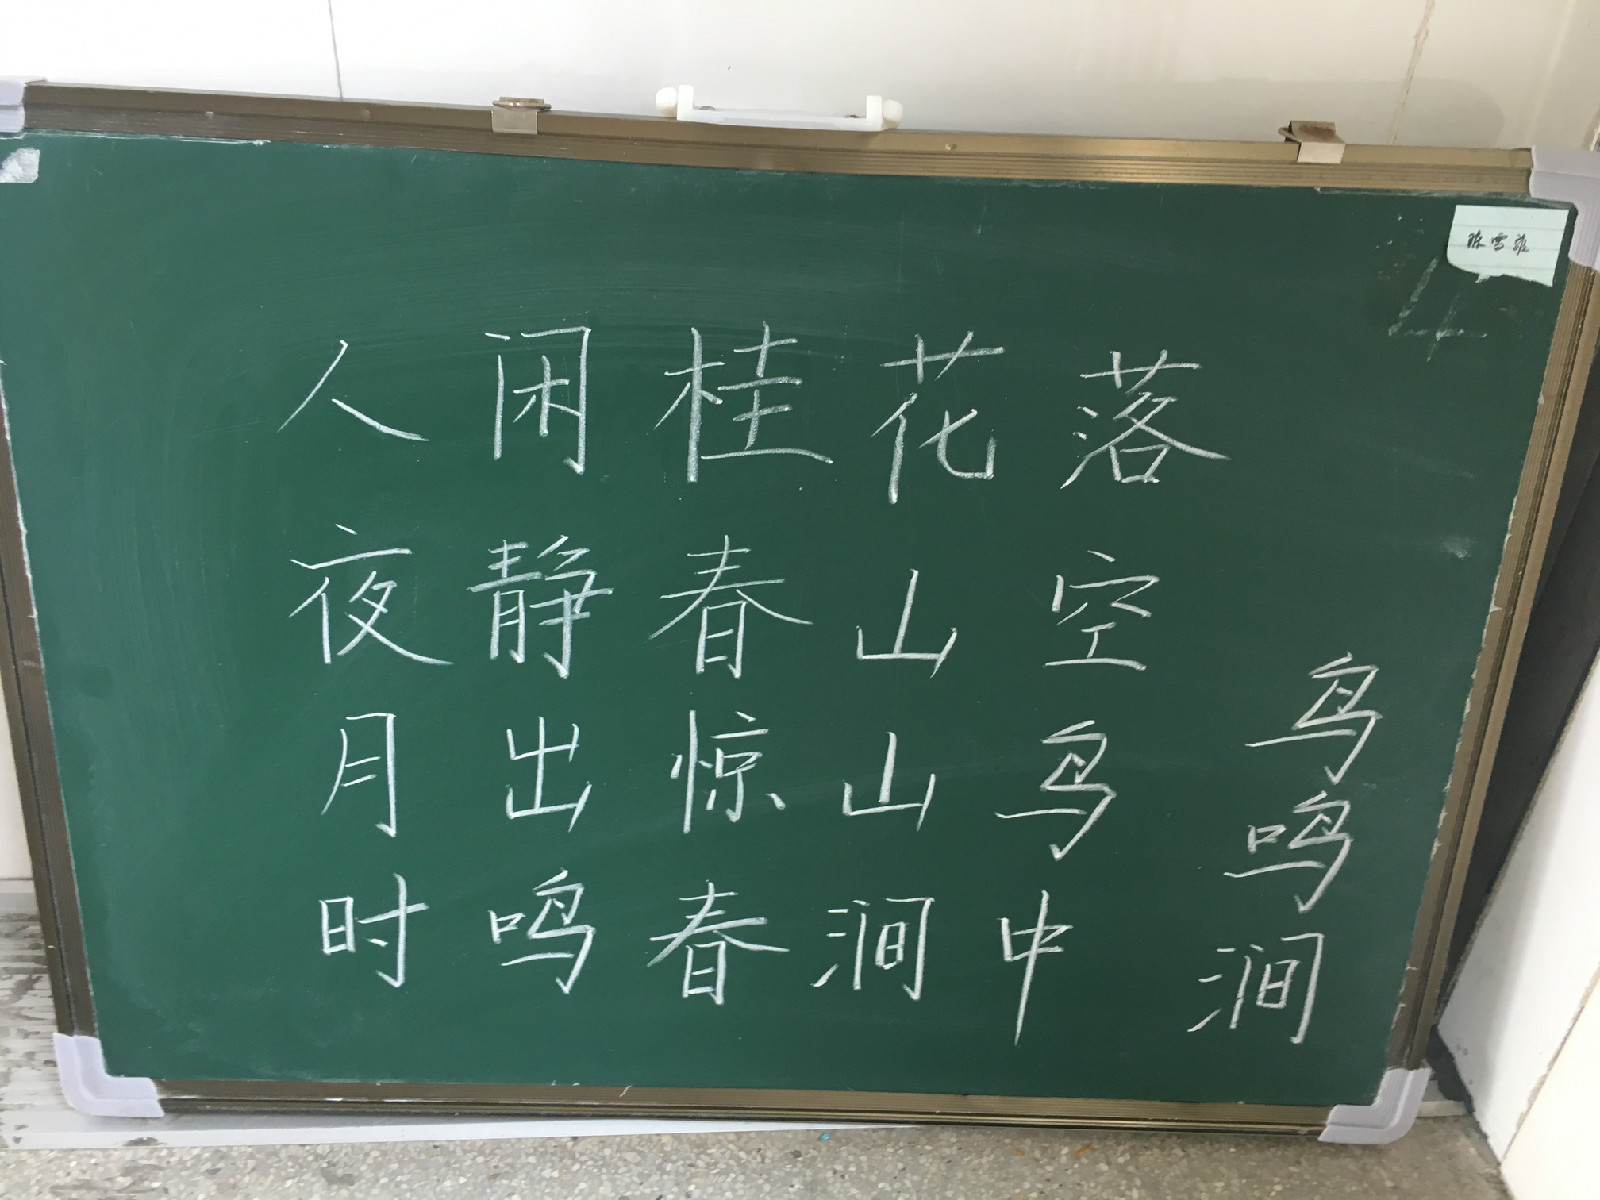 陈雪菲
人闲桂花落
夜静春山空
月出惊山鸟
时鸣春涧中
鸟鸣涧